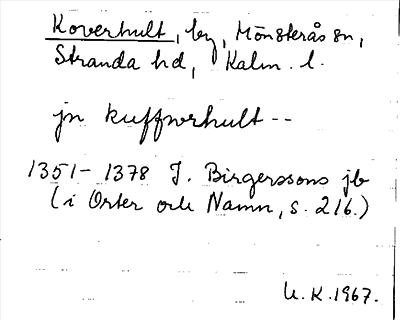 Koverhult, by, Mönsterås sn,
Stranda hd, Kalm. l.
jn kuffwerhult --
1351-1378 J. Birgerssons jb
(i Orter och Namn, s. 216.)
U.K.1967.